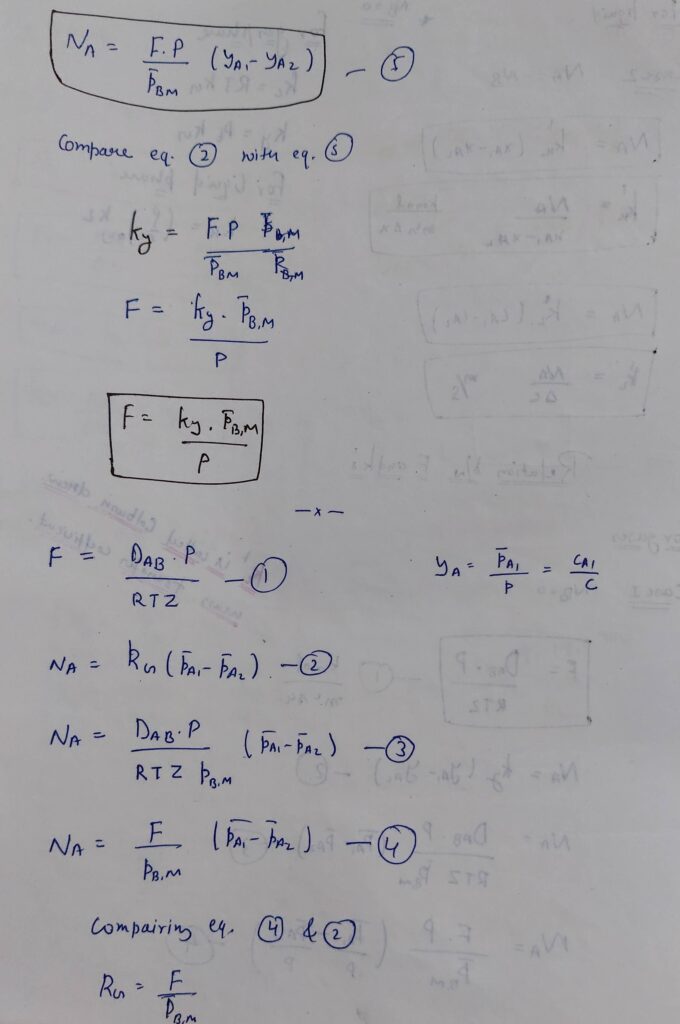 N_A = F.P / p̄_BM (y_A1 - y_A2) — ⑤
Compare eq. ② with eq. ⑤
k_y = F.P / p̄_BM
F = k_y . p̄_B,M / P
F = k_y . p̄_B,M / P
— x —
F = D_AB . P / RTZ — ①
y_A = p̄_A1 / P = C_A1 / C
N_A = k_G (p̄_A1 - p̄_A2) — ②
N_A = D_AB . P / RTZ p_B,M (p̄_A1 - p̄_A2) — ③
N_A = F / p_B,M (p̄_A1 - p̄_A2) — ④
Compairing eq. ④ & ②
k_G = F / p̄_B,M